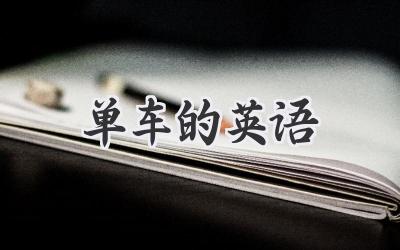 单车的英语